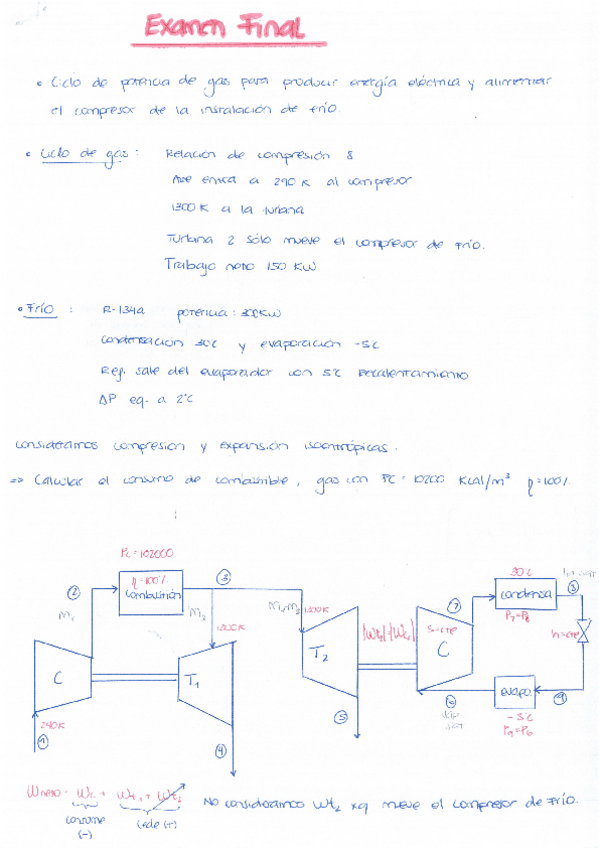 Examen Final
• Ciclo de potencia de gas para producir energía eléctrica y alimentar
el compresor de la instalación de frío.
• Ciclo de gas : Relación de compresión 8
Aire entra a 290 K al compresor
1300 K a la turbina
Turbina 2 sólo mueve el compresor de frío.
Trabajo neto 150 KW
• Frío : R-134a potencia: 300KW
Condensación 30ºC y evaporación -5ºC
Ref. sale del evaporador con 5ºC recalentamiento
ΔP eq. a 2ºC
Consideramos compresión y expansión isoentrópicas.
=> Calcular el consumo de combustible, gas con PC = 10200 Kcal/m³ η=100%
PC = 102000
η=100%
combustión
2
3
m1
m2
1300K
C
T1
290K
1
4
m1-m2
1300K
T2
5
|Wt2|=|Wc|
S=cte
C
7
30ºC
condensa
P7=P8
8
h=cte
evapo.
-5ºC
P9=P6
6
9
Wneto = Wc + Wt1 + Wt2
consume
(-)
cede (+)
No consideramos Wt2 xq mueve el compresor de frío.